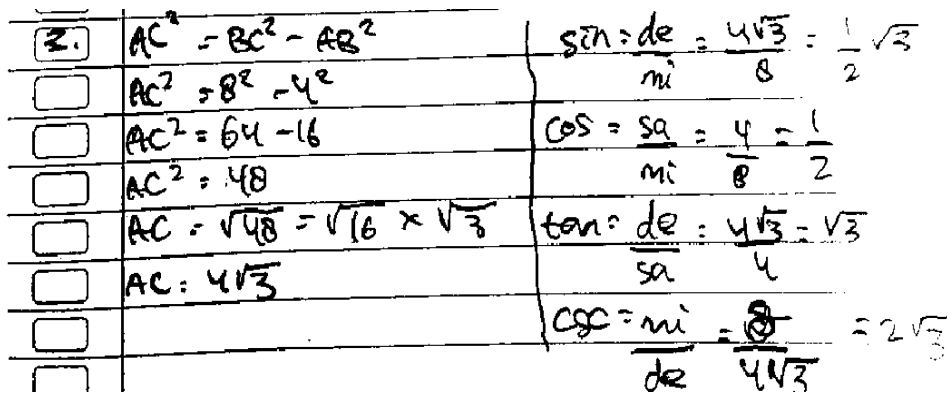 2. AC² = BC² - AB²
AC² = 8² - 4²
AC² = 64 - 16
AC² = 48
AC = √48 = √16 × √3
AC = 4√3
sin = de/mi = 4√3/8 = 1/2 √3
cos = sa/mi = 4/8 = 1/2
tan = de/sa = 4√3/4 = √3
csc = mi/de = 8/4√3 = 2√3